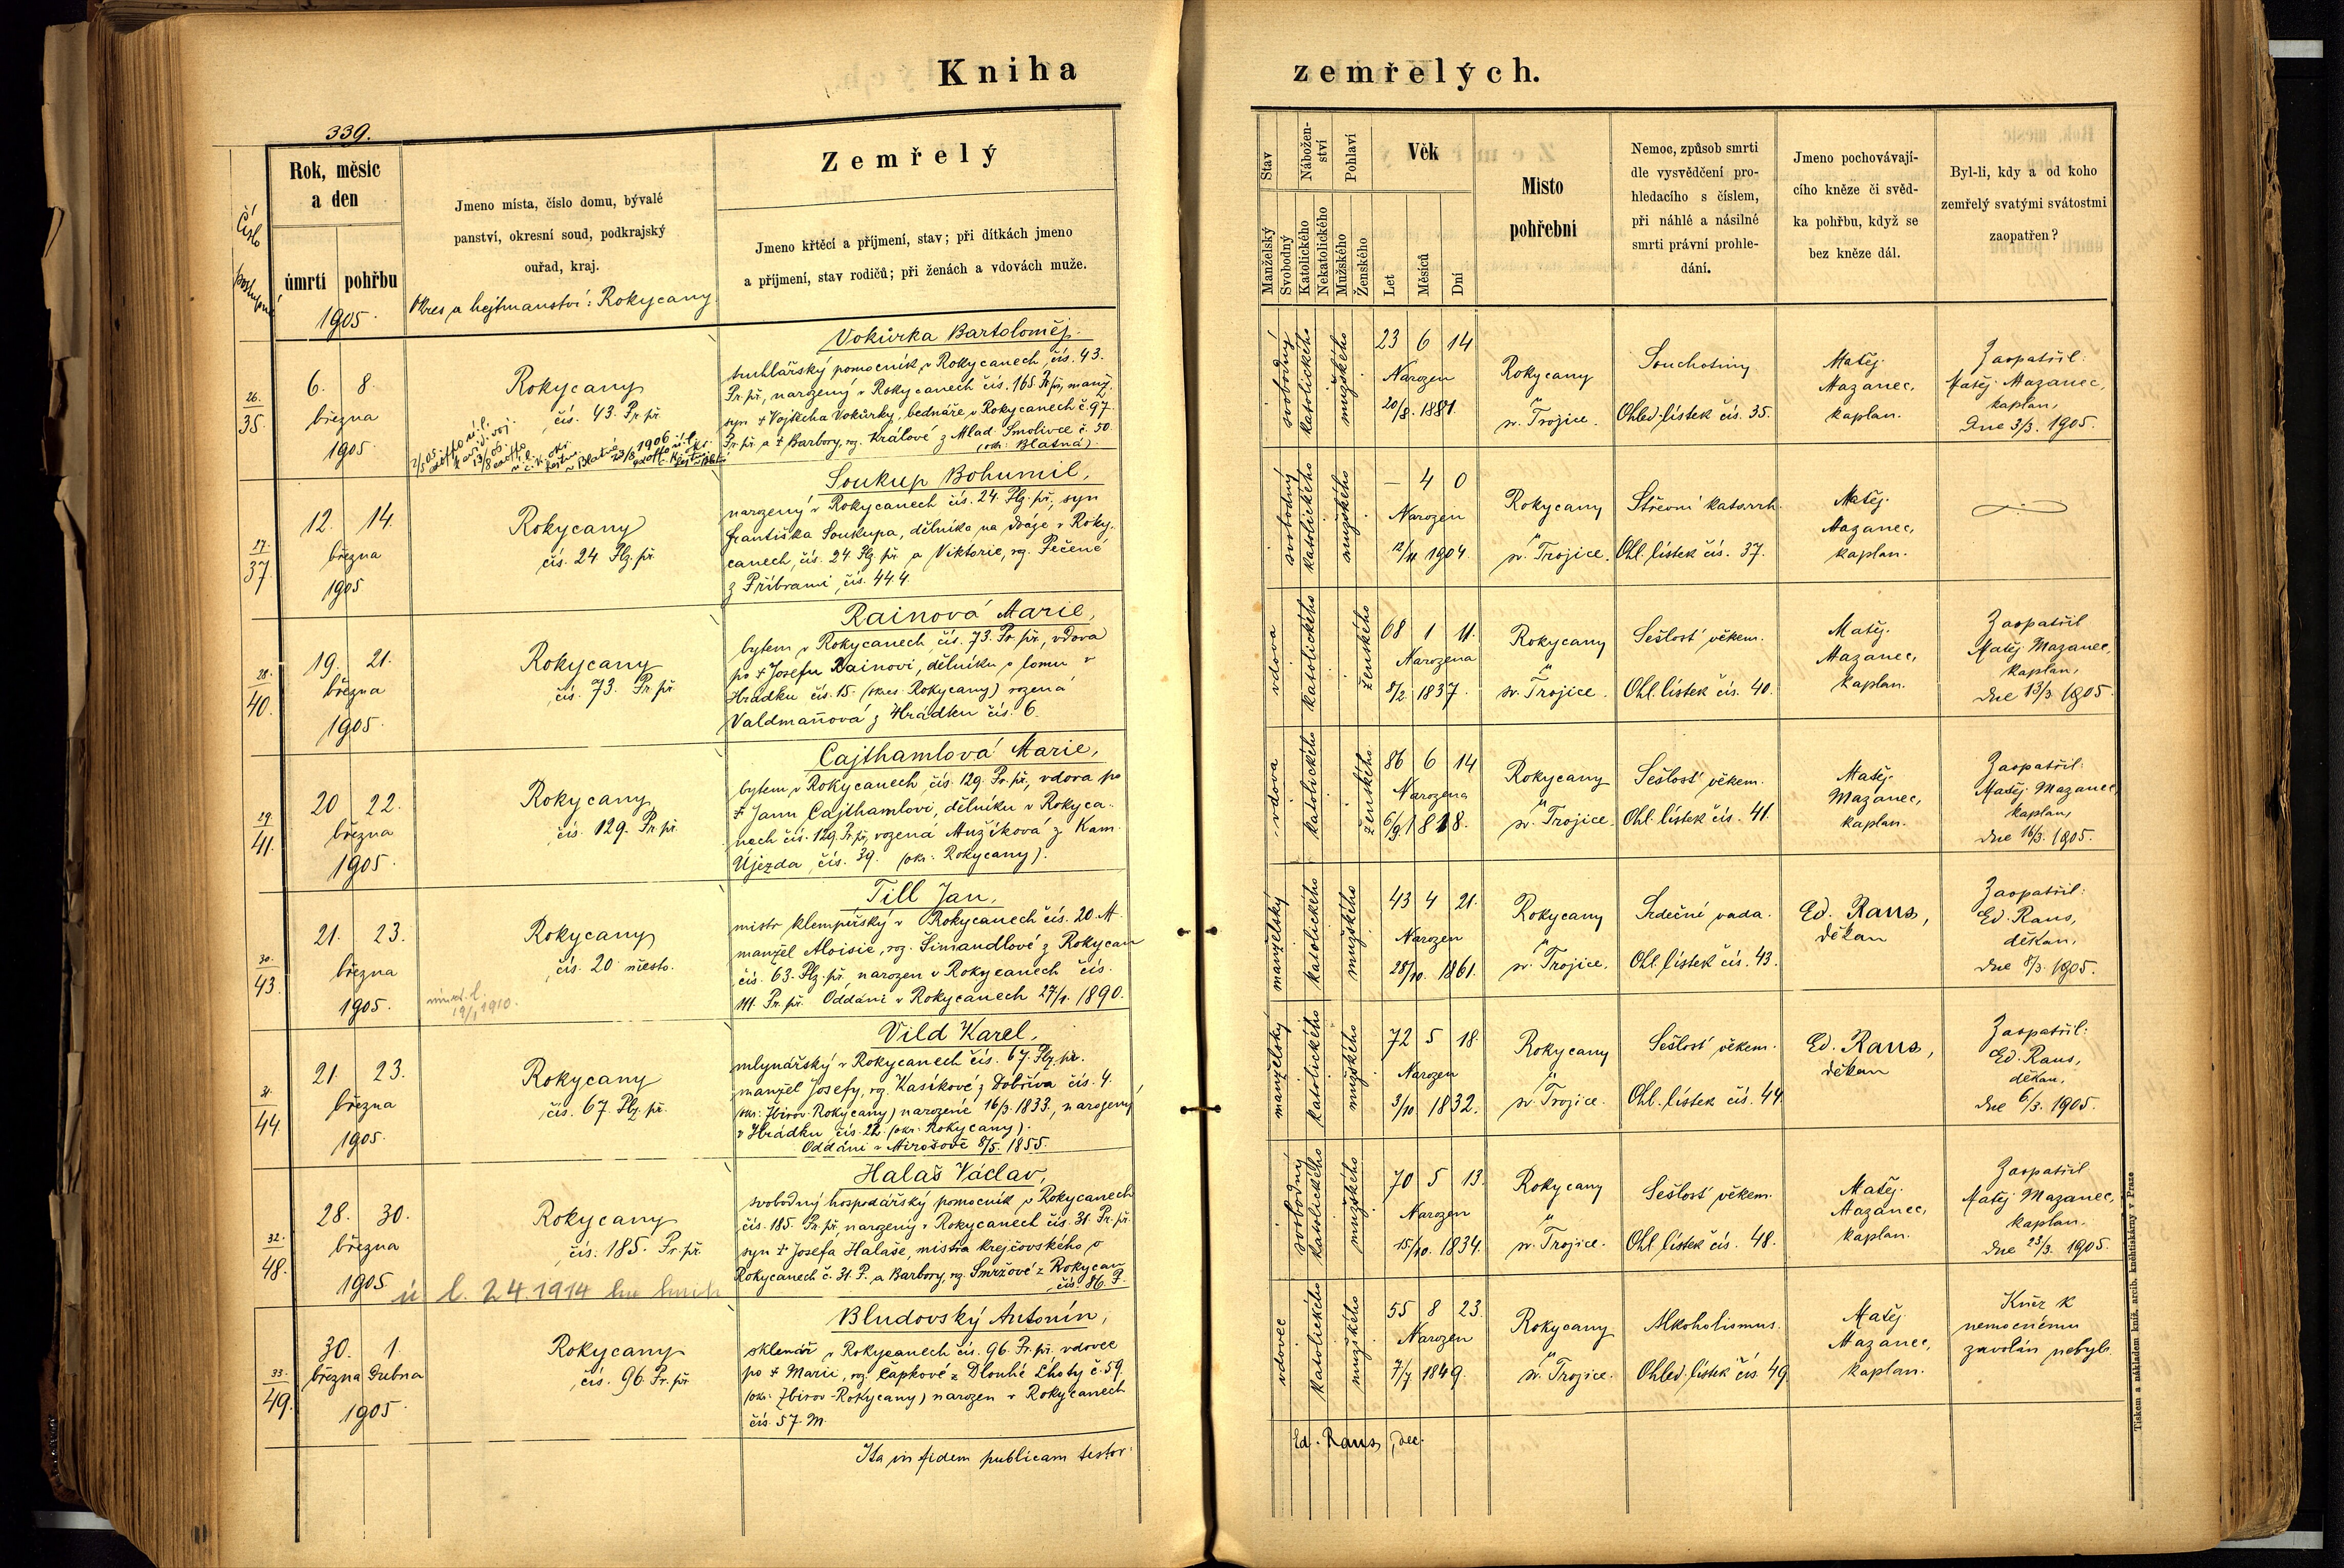 Kniha
zemřelých.
339.
Číslo
postupné
Rok, měsíc
a den
úmrtí
pohřbu
1905.
Jmeno místa, číslo domu, bývalé
panství, okresní soud, podkrajský
ouřad, kraj.
Okres a hejtmanství: Rokycany.
Zemřelý
Jmeno křtěcí a příjmení, stav; při dítkách jmeno
a příjmení, stav rodičů; při ženách a vdovách muže.
Stav
Manželský
Svobodný
Nábožen-
ství
Katolického
Nekatolického
Pohlaví
Mužského
Ženského
Věk
Let
Měsíců
Dní
Místo
pohřební
Nemoc, způsob smrti
dle vysvědčení pro-
hledacího s číslem,
při náhlé a násilné
smrti právní prohle-
dání.
Jmeno pochovávají-
cího kněze či svěd-
ka pohřbu, když se
bez kněze dál.
Byl-li, kdy a od koho
zemřelý svatými svátostmi
zaopatřen?
26.
35.
6. 8.
března
1905.
Rokycany
čís. 43. Pr. př.
Vokůrka Bartoloměj.
truhlářský pomocník v Rokycanech, čís. 43.
Pr. př., narozený v Rokycanech čís. 165 Pr. př., manž.
syn † Vojtěcha Vokůrky, bednáře v Rokycanech č. 97
Pr. př. a † Barbory, roz. Králové z Mlad. Smolivce č. 50.
(okr. Blatná).
svobodný
katolického
mužského
23 6 14
Narozen
20/8. 1881.
Rokycany
sv. Trojice.
Souchotiny
Ohled. lístek čís. 35.
Matěj
Mazanec,
kaplan.
Zaopatřil:
Matěj Mazanec,
kaplan,
Dne 3/3. 1905.
27.
37.
12. 14.
března
1905
Rokycany
čís. 24 Plz. př.
Soukup Bohumil,
narozený v Rokycanech čís. 24. Plz. př., syn
Františka Soukupa, dělníka na dráze v Roky-
canech, čís. 24. Plz. př. a Viktorie, roz. Pečené
z Příbrami, čís. 444.
svobodný
katolického
mužského
– 4 0
Narozen
12/11 1904.
Rokycany
sv. Trojice.
Střevní katarrh.
Ohl. lístek čís. 37.
Matěj
Mazanec,
kaplan.
28.
40.
19. 21.
března
1905.
Rokycany
čís. 73. Pr. př.
Rainová Marie,
bytem v Rokycanech, čís. 73. Pr. př., vdova
po † Josefu Rainovi, dělníku v lomu v
Hrádku čís. 15. (okres Rokycany) rozená
Valdmanová z Hrádku čís. 6.
vdova
katolického
ženského
68 1 11.
Narozena
8/2 1837.
Rokycany
sv. Trojice.
Sešlost věkem.
Ohl. lístek čís. 40.
Matěj
Mazanec,
kaplan.
Zaopatřil
Matěj Mazanec,
kaplan,
dne 13/3. 1905.
29.
41.
20 22.
března
1905.
Rokycany
čís. 129. Pr. př.
Cajthamlová Marie,
bytem v Rokycanech, čís. 129. Pr. př., vdova po
† Janu Cajthamlovi, dělníku v Rokyca-
nech čís. 129. Pr. př., rozená Mužíková z Kam.
Újezda, čís. 39. (okr. Rokycany).
vdova
katolického
ženského
86 6 14
Narozena
6/9. 1818.
Rokycany
sv. Trojice.
Sešlost věkem.
Ohl. lístek čís. 41.
Matěj
Mazanec,
kaplan.
Zaopatřil:
Matěj Mazanec,
kaplan,
dne 16/3. 1905.
30.
43.
21. 23.
března
1905.
Rokycany
čís. 20 město.
Till Jan,
mistr klempířský v Rokycanech čís. 20. M.
manžel Aloisie, roz. Šimandlové z Rokycan
čís. 63. Plz. př., narozen v Rokycanech čís.
111. Pr. př. Oddáni v Rokycanech 27/1. 1890.
manželský
katolického
mužského
43 4 21.
Narozen
28/10. 1861.
Rokycany
sv. Trojice.
Srdečné vada.
Ohl. lístek čís. 43.
Ed. Raus,
děkan
Zaopatřil:
Ed. Raus,
děkan,
dne 8/3. 1905.
31.
44.
21. 23.
března
1905.
Rokycany
čís. 67. Plz. př.
Vild Karel,
mlynářský v Rokycanech čís. 67. Plz. př.
manžel Josefy, roz. Kasíkové z Dobříva čís. 4.
(okr. Zbirov-Rokycany) narozené 16/3. 1833., narozený
v Hrádku čís. 22. (okr. Rokycany).
Oddáni v Mirošově 8/5. 1855.
manželský
katolického
mužského
72 5 18.
Narozen
3/10 1832.
Rokycany
sv. Trojice.
Sešlost věkem.
Ohl. lístek čís. 44.
Ed. Raus,
děkan
Zaopatřil:
Ed. Raus,
děkan,
dne 6/3. 1905.
32.
48.
28. 30.
března
1905
Rokycany
čís. 185. Pr. př.
ú. l. 2 4. 1914
Halaš Václav,
svobodný hospodářský pomocník v Rokycanech
čís. 185. Pr. př., narozený v Rokycanech čís. 31. Pr. př.
syn † Josefa Halaše, mistra krejčovského v
Rokycanech č. 31. P. a Barbory, roz. Smržové z Rokycan
čís. 86. P.
svobodný
katolického
mužského
70 5 13.
Narozen
15/10. 1834.
Rokycany
sv. Trojice.
Sešlost věkem.
Ohl. lístek čís. 48.
Matěj
Mazanec,
kaplan.
Zaopatřil
Matěj Mazanec,
kaplan.
dne 23/3. 1905.
33.
49.
30. 1.
března Dubna
1905.
Rokycany
čís. 96. Pr. př.
Bludovský Antonín,
sklenář v Rokycanech čís. 96. Pr. př. vdovec
po † Marii, roz. Čapkové z Dlouhé Lhoty č. 59.
(okr. Zbirov-Rokycany) narozen v Rokycanech
čís. 57. M.
vdovec
katolického
mužského
55 8 23.
Narozen
7/7 1849.
Rokycany
sv. Trojice.
Alkoholismus.
Ohled. lístek čís. 49
Matěj
Mazanec,
kaplan.
Kněz k
nemocnému
zavolán nebyl.
Ita in fidem publicam testor:
Ed. Raus, dec.
Tiskem a nákladem kníž. arcib. knihtiskárny v Praze